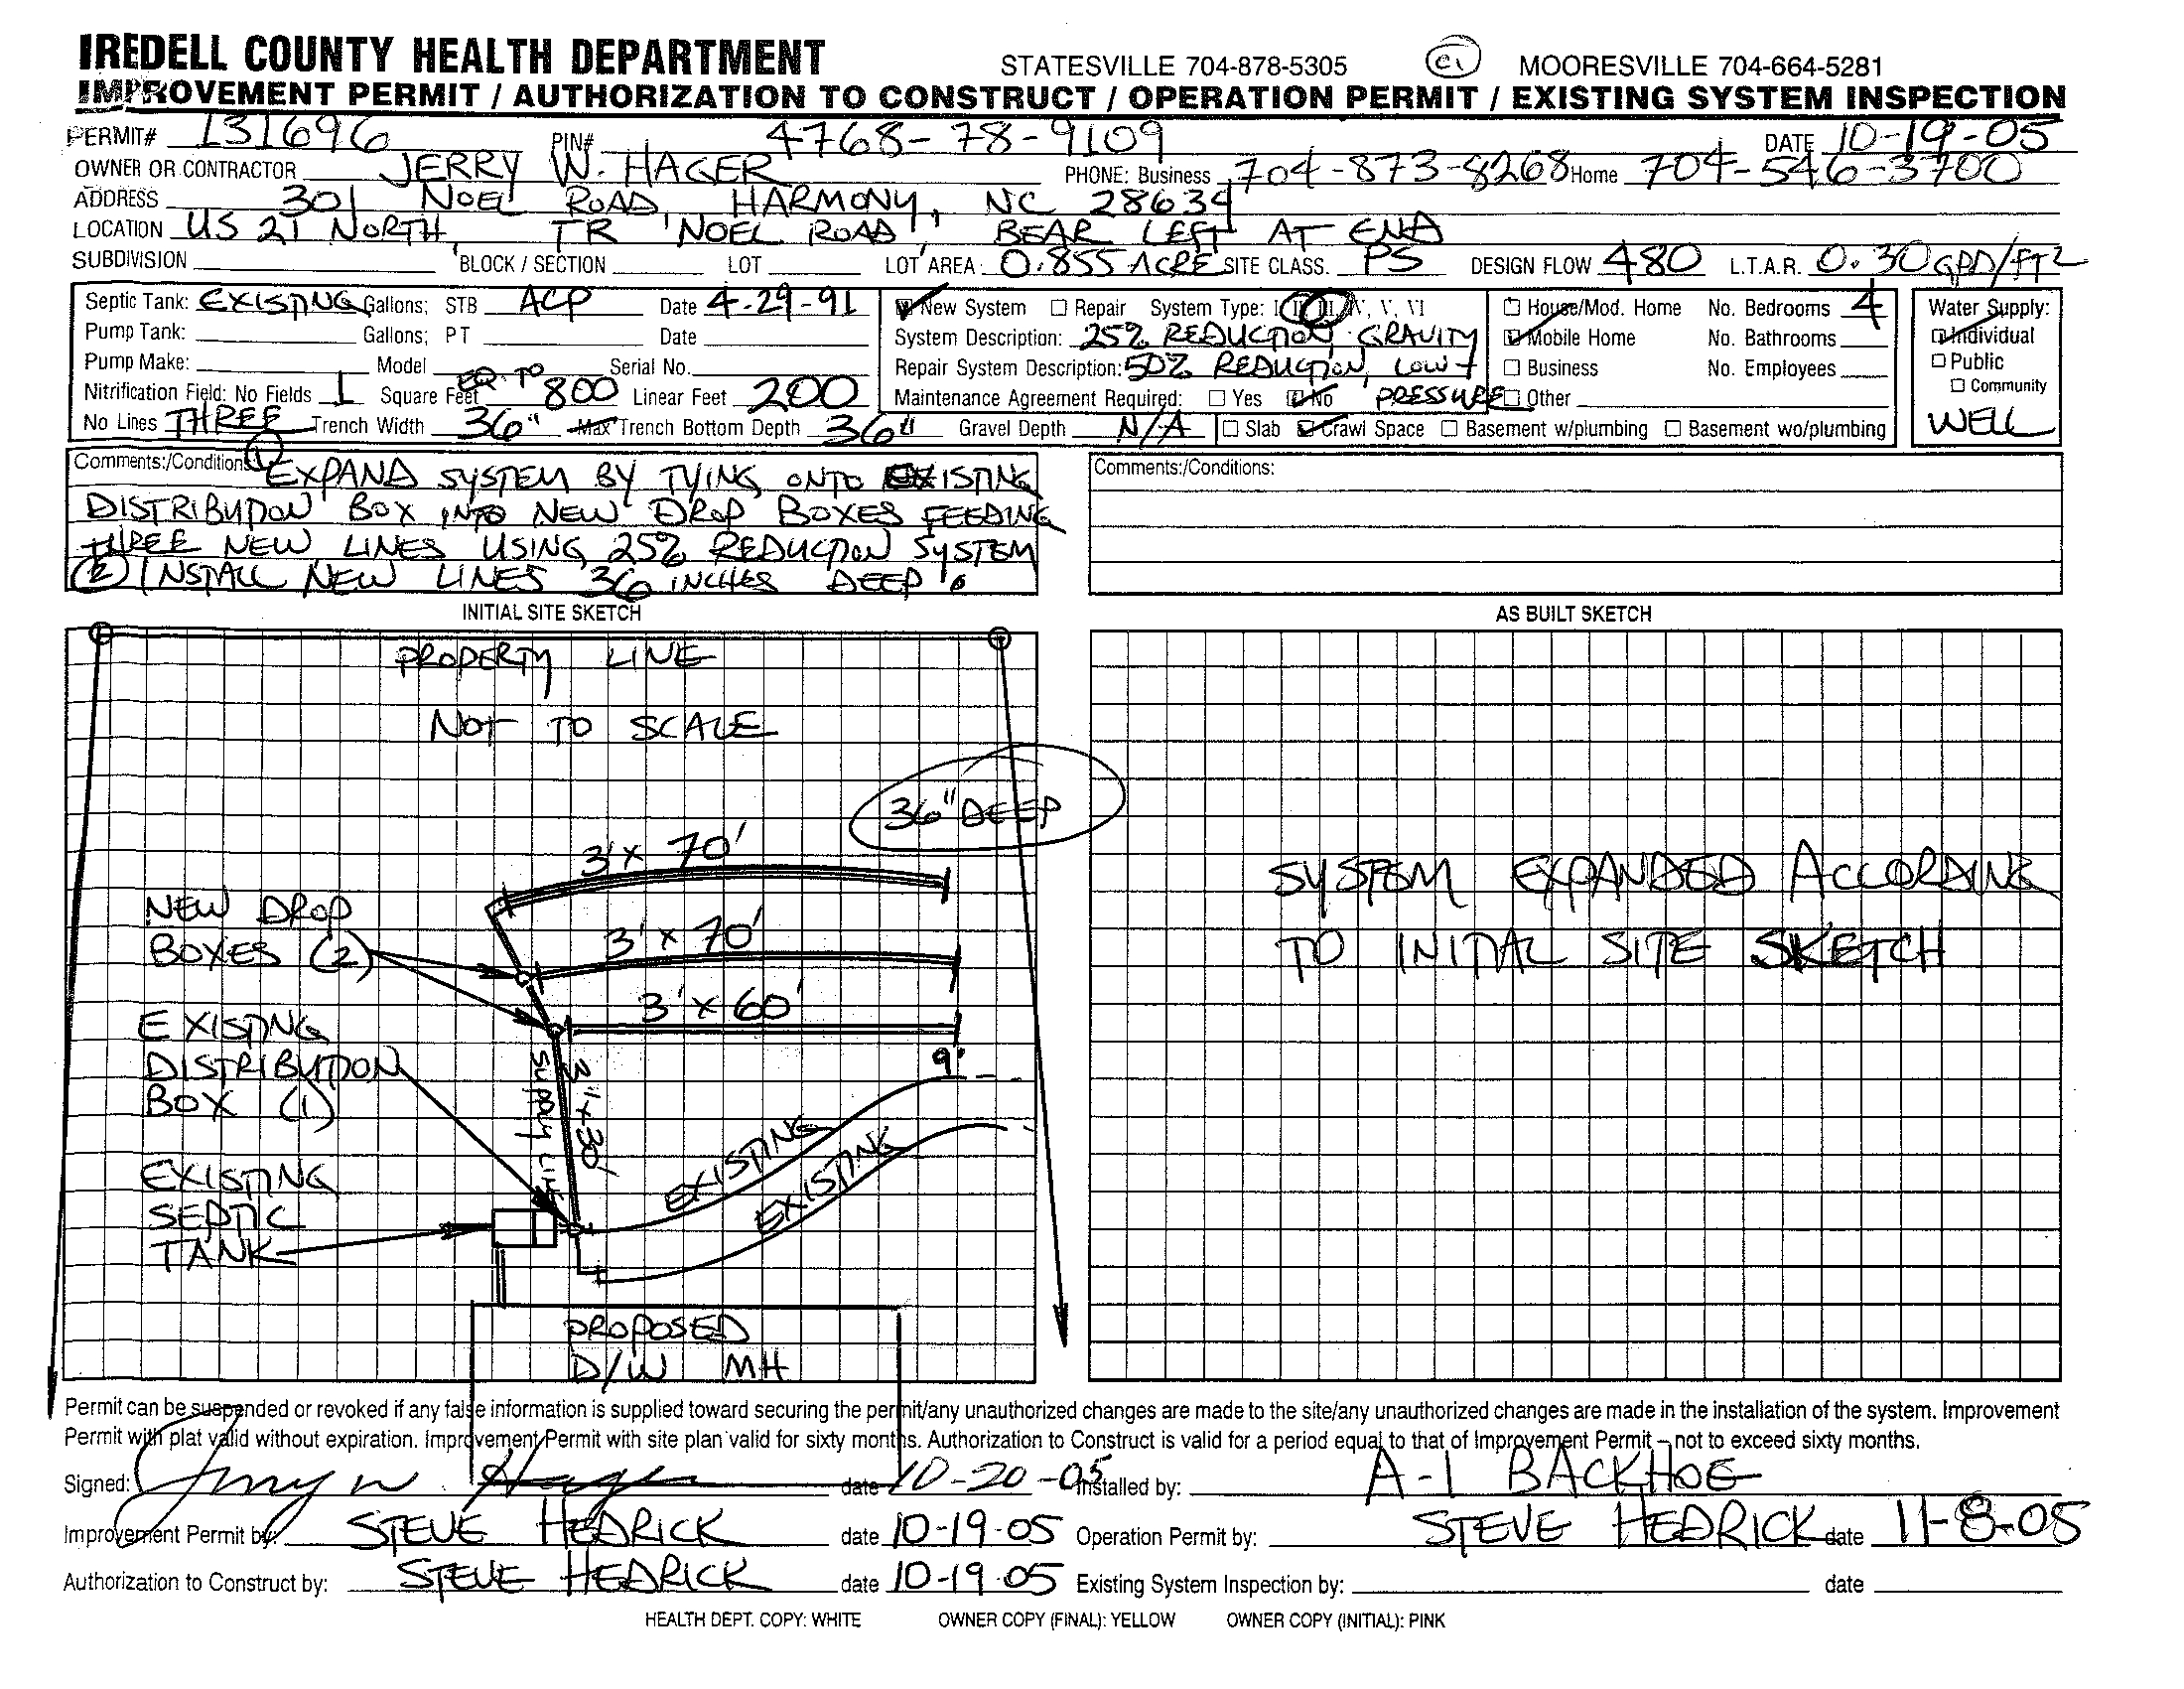 IREDELL COUNTY HEALTH DEPARTMENT STATESVILLE 704-878-5305 ei MOORESVILLE 704-664-5281
IMPROVEMENT PERMIT / AUTHORIZATION TO CONSTRUCT / OPERATION PERMIT / EXISTING SYSTEM INSPECTION
PERMIT# 131696 PIN# 4768-78-9109 DATE 10-19-05
OWNER OR CONTRACTOR JERRY W. HAGER PHONE: Business 704-873-8268 Home 704-546-3700
ADDRESS 301 NOEL ROAD, HARMONY, NC 28634
LOCATION US 21 NORTH, TR 'NOEL ROAD', BEAR LEFT AT END
SUBDIVISION BLOCK / SECTION LOT LOT AREA: 0.855 ACRE SITE CLASS. PS DESIGN FLOW 480 L.T.A.R. 0.30 GPD/FT2
Septic Tank: EXISTING Gallons; STB ACP Date 4-29-91
Pump Tank: Gallons; PT Date
Pump Make: Model Serial No.
Nitrification Field: No Fields 1 Square Feet EQ. TO 800 Linear Feet 200
No Lines THREE Trench Width 36" Max Trench Bottom Depth 36" Gravel Depth N/A
New System Repair System Type: I, II, III, IV, V, VI
System Description: 25% REDUCTION, GRAVITY
Repair System Description: 50% REDUCTION, LOW
Maintenance Agreement Required: Yes No PRESSURE
Slab Crawl Space Basement w/plumbing Basement wo/plumbing
House/Mod. Home No. Bedrooms 4
Mobile Home No. Bathrooms
Business No. Employees
Other
Water Supply:
Individual
Public
Community
WELL
Comments:/Conditions: 1 EXPAND SYSTEM BY TYING ONTO EXISTING
DISTRIBUTION BOX INTO NEW DROP BOXES FEEDING
THREE NEW LINES USING 25% REDUCTION SYSTEM
2 INSTALL NEW LINES 36 INCHES DEEP.
Comments:/Conditions:
INITIAL SITE SKETCH
PROPERTY LINE
NOT TO SCALE
36" DEEP
3' x 70'
NEW DROP
BOXES (2)
3' x 70'
3' x 60'
EXISTING
DISTRIBUTION
BOX (1)
SUPPLY LINE
3' x 30'
9'
EXISTING
EXISTING
EXISTING
SEPTIC
TANK
PROPOSED
D/W MH
AS BUILT SKETCH
SYSTEM EXPANDED ACCORDING
TO INITIAL SITE SKETCH
Permit can be suspended or revoked if any false information is supplied toward securing the permit/any unauthorized changes are made to the site/any unauthorized changes are made in the installation of the system. Improvement
Permit with plat valid without expiration. Improvement Permit with site plan valid for sixty months. Authorization to Construct is valid for a period equal to that of Improvement Permit – not to exceed sixty months.
Signed: Jerry W. Hager date 10-20-05 Installed by: A-1 BACKHOE
Improvement Permit by: STEVE HEDRICK date 10-19-05 Operation Permit by: STEVE HEDRICK date 11-8-05
Authorization to Construct by: STEVE HEDRICK date 10-19-05 Existing System Inspection by: date
HEALTH DEPT. COPY: WHITE OWNER COPY (FINAL): YELLOW OWNER COPY (INITIAL): PINK